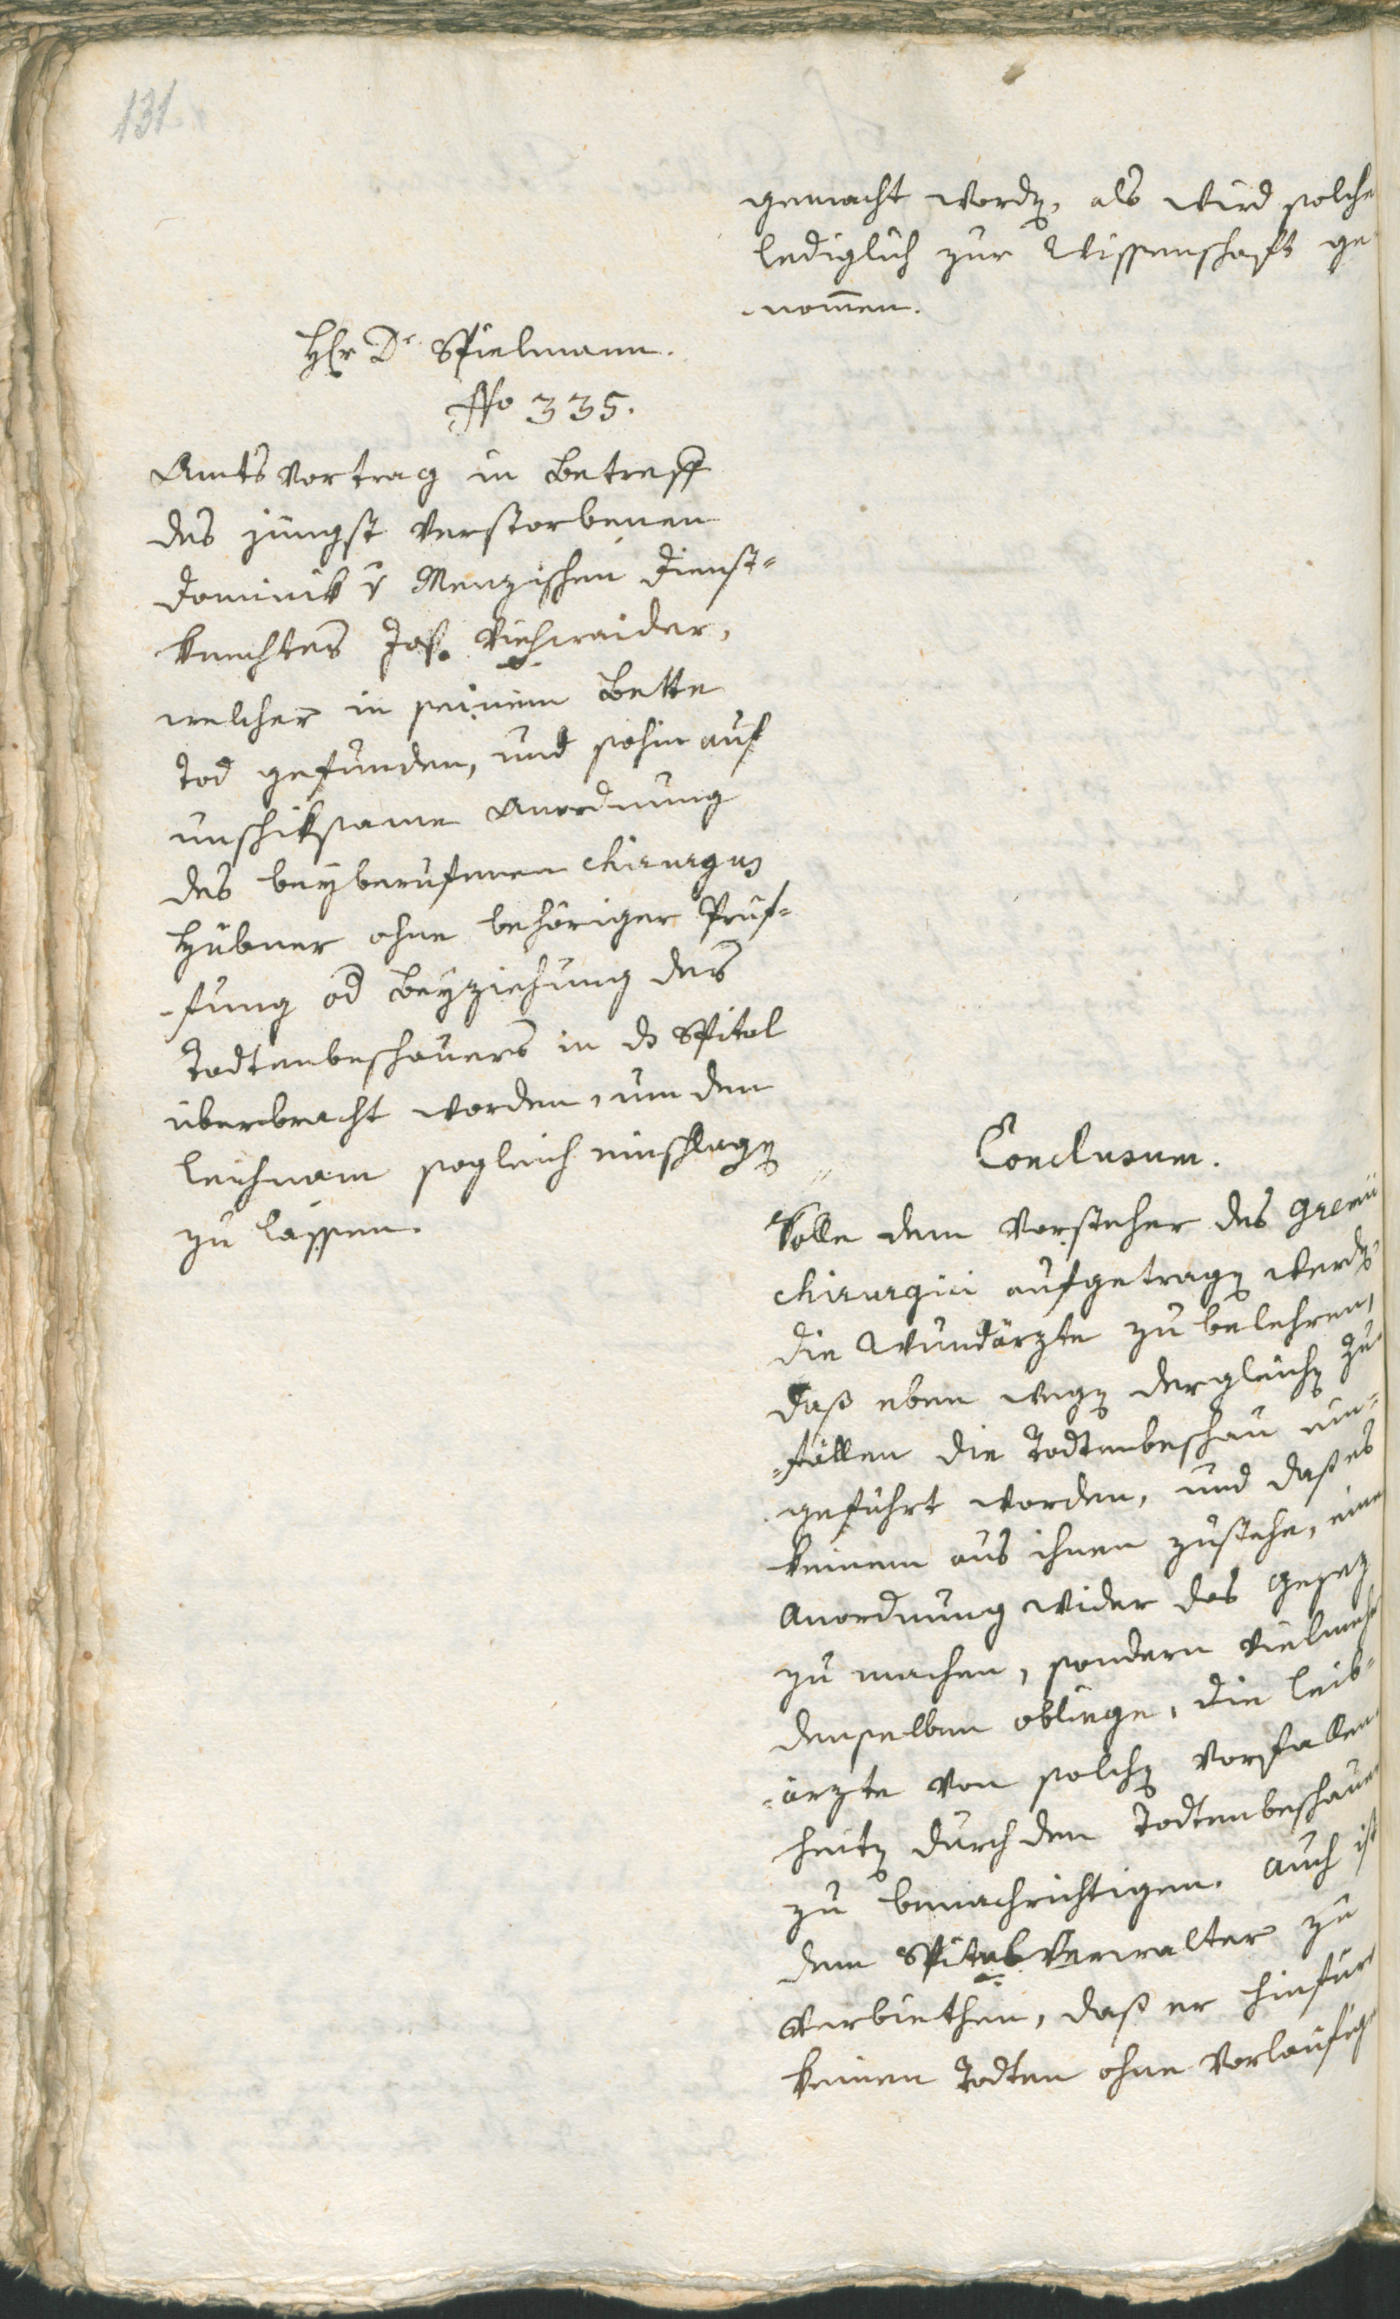 131.
gemacht word̄, als wird solche
lediglich zur Wissenschaft ge
nom̄en.
H̄ Dr. Spielmann.
No 335.
Amtsvortrag in Betreff
des jüngst verstorbenen
Dominik v Menzischen Dienst=
knechtes Jos. Viehwaider,
welcher in seinem Bette
Tod gefunden, und sohin auf
unschiksame Anordnung
des beyberufenen chirurgus
Hübner ohne behöriger Prüf=
=fung od Beyziehung des
Todtenbeschauers in ds Spital
überbracht worden, um den
Leichnam sogleich einschlaḡ
zu lassen.
Conclusum.
Solle dem Vorsteher des Gremii
chirurgici aufgetraḡ werd̄
die Wundärzte zu belehren,
daß eben weḡ dergleich̄ Zu
=fällen die Todtenbeschau ein=
geführt worden, und daß es
keinem aus ihnen zustehe, eine
Anordnung wider das Gesaz
zu machen, sondern vielmehr
denselben obliege, die Leib=
=ärzte von solch̄ Vorfallen
heit̄ durch den Todtenbeschauer
zu benachrichtigen. Auch ist
dem Spital Verwalter zu
verbiethen, daß er hinfür
keinen Todten ohne vorläufige